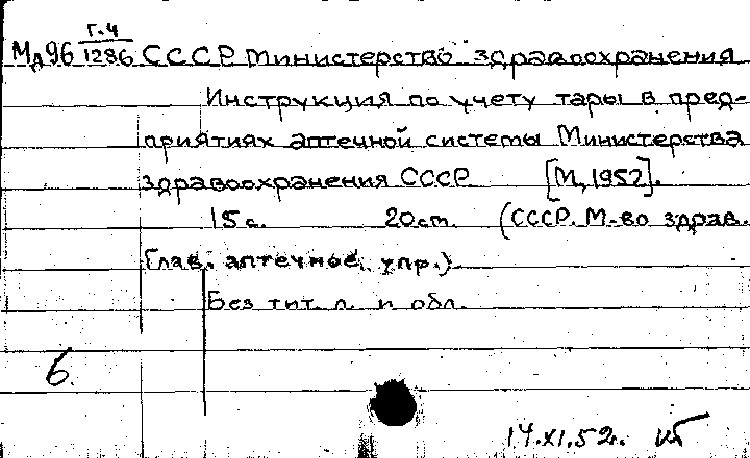 Мд96 Г.4/1286 СССР. Министерство здравоохранения
Инструкция по учету тары в пред-
приятиях аптечной системы Министерства
здравоохранения СССР. [М., 1952].
15 с. 20 см. (СССР. М-во здрав.
Глав. аптечное упр.)
Без тит. л. и обл.
6
14.XI.52г.